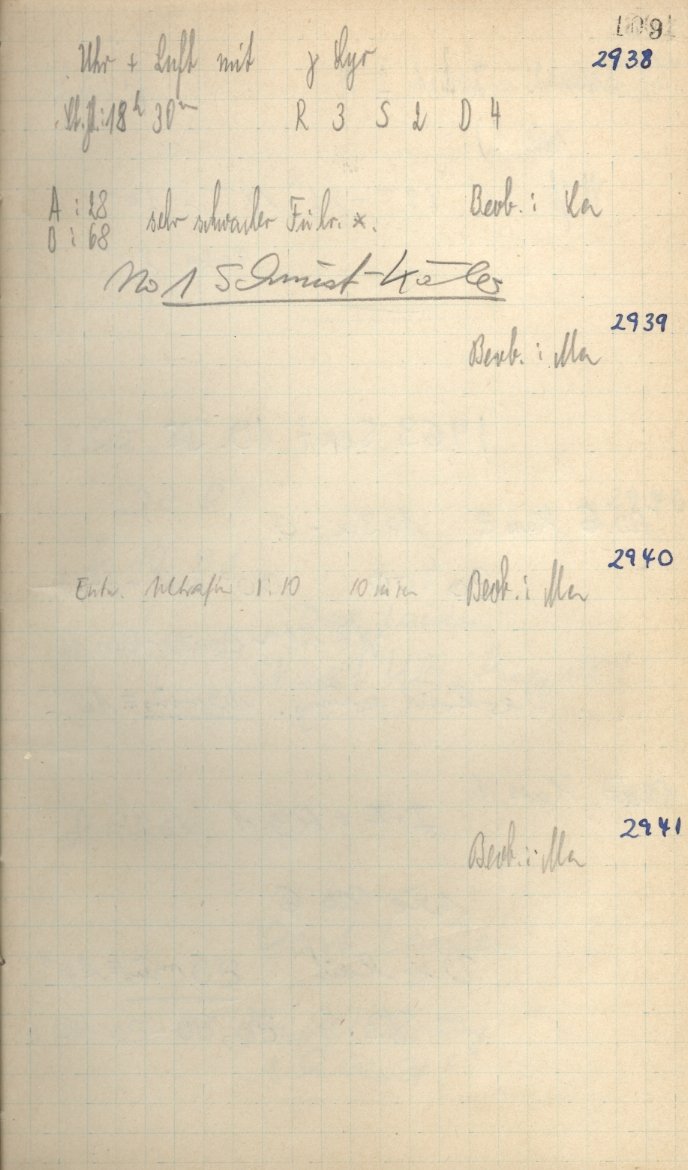 109
2938
Uhr + Luft mit γ Lyr
St.Z.: 18h 30m R 3 S 2 D 4
A : 28
D : 68 sehr schwacher Führ. *. Beob. :
No 1 Schmidt-Kaler
2939
Beob. : Ma
2940
Entw. Ultrafin 1:10 10 min Beob. : Ma
2941
Beob. : Ma